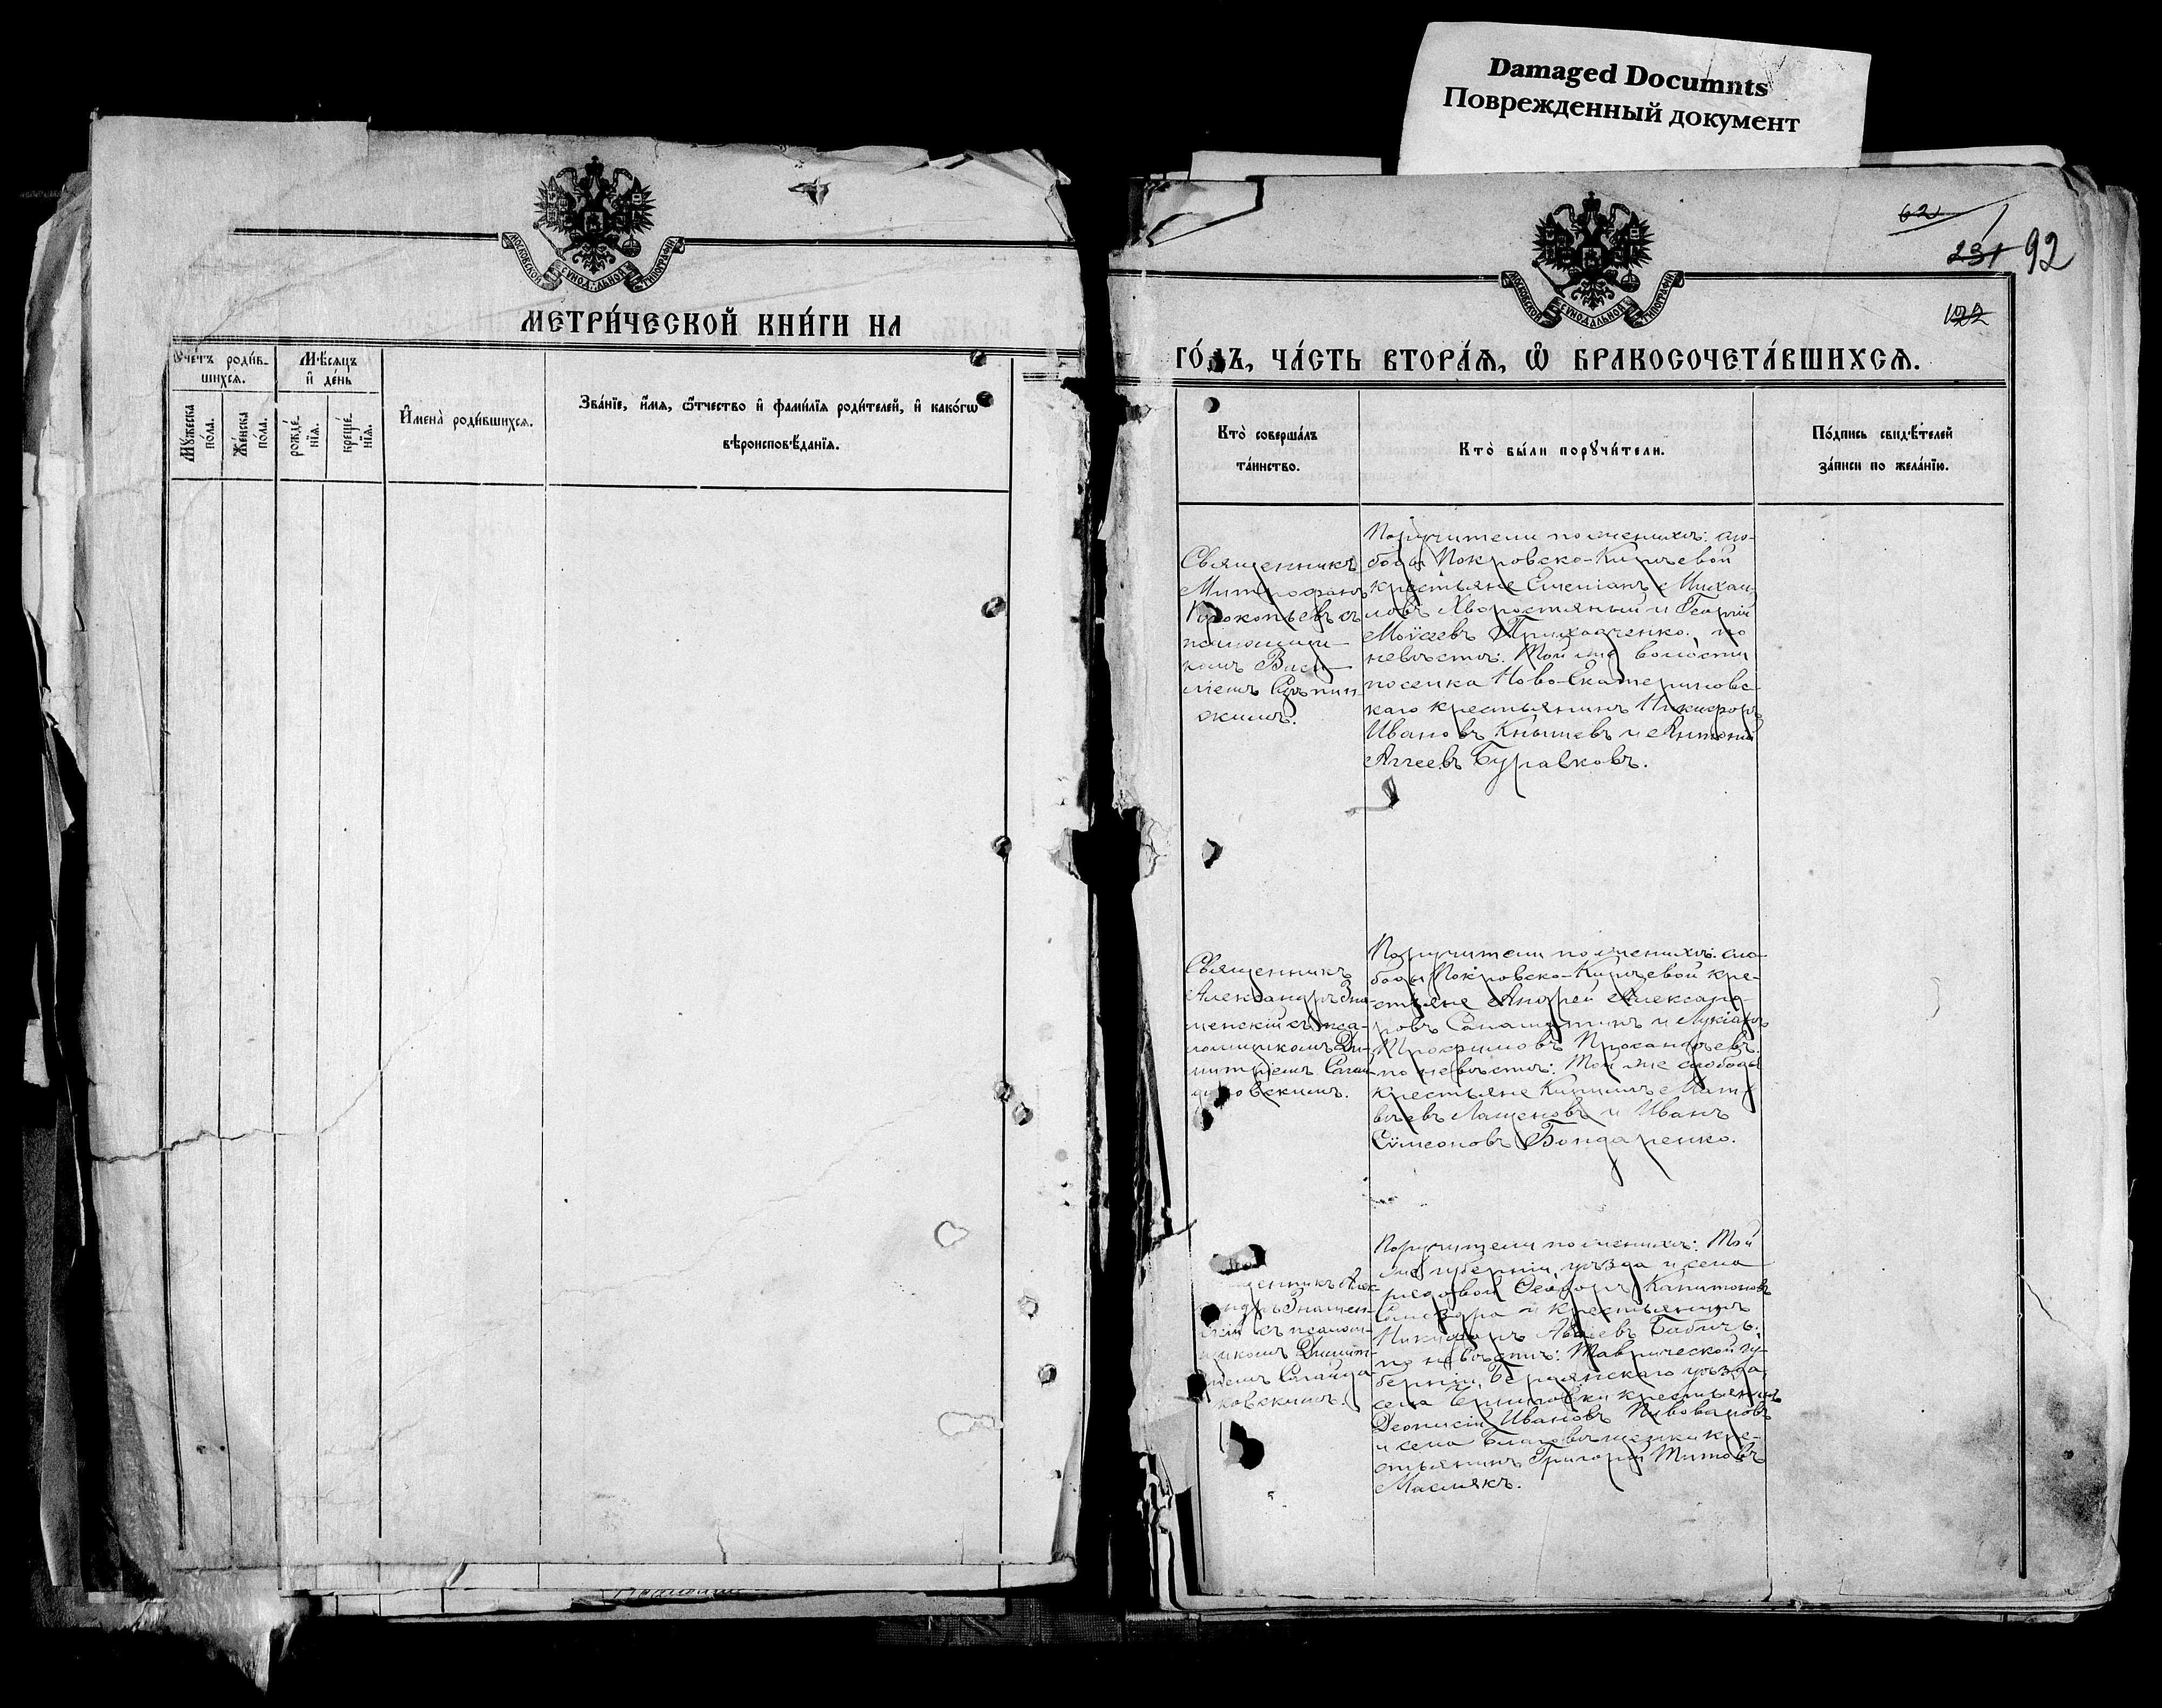 Damaged Documnts
Поврежденный документ
МОСКОВСКОЙ СУНОДАЛЬНОЙ ТИПОГРАФІИ
МЕТРИ́ЧЕСКОЙ КНИ́ГИ НА
Счетъ роди́в-
шихсѧ.
Мѣ́сѧцъ
и҆ де́нь
Мꙋ́жеска
по́ла.
Же́нска
по́ла.
рожде́-
нїѧ.
креще́-
нїѧ.
И҆мена̀ роди́вшихсѧ.
Зва́нїе, и҆́мѧ, ѻ҆́тчество и҆ фами́лїѧ роди́телей, и҆ како́гѡ
вѣроисповѣ́данїѧ.
62
231 92
122
МОСКОВСКОЙ СУНОДАЛЬНОЙ ТИПОГРАФІИ
ГО́ДЪ, ЧА́СТЬ ВТОРА́Ѧ, Ѡ҆ БРАКОСОЧЕТА́ВШИХСѦ.
Кто̀ соверша́лъ
та́инство.
Кто̀ бы́ли порꙋчи́тели.
По́дпись свидѣ́телей
за́писи по жела́нїю.
Священникъ
Митрофанъ
Прокопьевъ съ
псаломщи-
комъ Васи-
ліемъ
скимъ.
Поручители по женихѣ: сло-
боды Покровско-Кирѣевой
крестьяне Емеліанъ Михаи-
ловъ Хворостяный и Георгій
Моѵсеевъ Приходченко, по
невѣстѣ: Той же волости
поселка Ново-Екатериновс-
каго крестьянинъ Никифоръ
Ивановъ Кнышевъ и Антоній
Аггеевъ Буравковъ.
Священникъ
Александръ Зна-
менскій съ пса-
ломщикомъ Ди-
митріемъ Сагай-
даковскимъ.
Поручители по женихѣ: сло-
боды Покровско-Кирѣевой кре-
стьяне Андрей Александ-
ровъ Саламатинъ и Лукіанъ
Трофимовъ
по невѣстѣ: Той же слободы
крестьяне Кириллъ Мат-
вѣевъ Лащеновъ и Иванъ
Сѵмеоновъ Бондаренко.
щенникъ Алек-
сандръ Знамен-
скій съ псалом-
щикомъ Димит-
ріемъ Сагайда-
ковскимъ.
Поручители по женихѣ: Той
же губерніи, уѣзда и села
рядовой Ѳеодоръ Капитоновъ
и крестьянинъ
Никифоръ Бабичъ;
по невѣстѣ: Таврической гу-
берніи, Бердянскаго уѣзда,
села Черниговки крестьянинъ
Діонисій Ивановъ Пивоваровъ
и села Благовѣщенки кре-
стьянинъ Григорій Титовъ
Маслякъ.